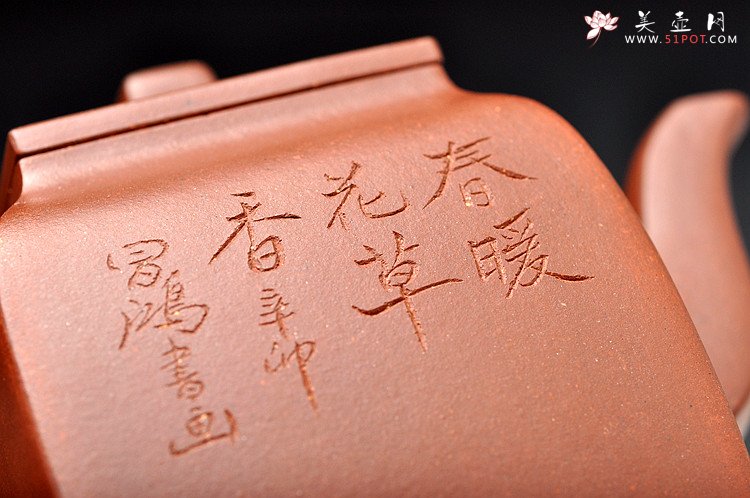 春暖
花草
香辛卯
冒鸿書画
美壶网
WWW.51POT.COM